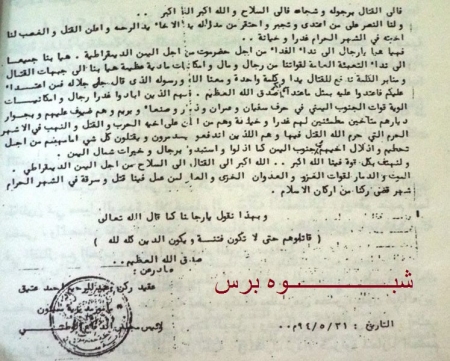 فالى القتال برجوله وشجاعه فالى السلاح والله اكبر الله اكبر ..
ولنا النصر على من اعتدى وتجبر واحتقر من مد له يد الاخاء يد الرحمه واعلن القتل والغصب لنا
اخيه في الشهر الحرام غدرا وخيانة ..
فهيا هيا يارجال الى نداء الفداء من اجل حضرموت من اجل اليمن الديمقراطية . هيا بنا جميعا
الى نداء التعبئة العامة لقواتنا من رجال ومال وامكانيات مادية عظيمة هيا بنا الى جبهات القتال
للقتال يدا وكلمة واحدة ومعنا الله ورسوله الذى قال جل جلاله فمن اعتدى
عليكم فاعتدوا عليه بمثل ما اعتدى صدق الله العظيم . فهم الذين ابادوا غدرا رجال وامكانيات
الوية قوات الجنوب اليمني في حرف سفيان وعمران وذمار وصنعاء ويريم وهم ضيوف عليهم وبجوار
ديارهم متآخين مطمئنين لهم غدرا وخيانة وهم من الحرب والقتل والنهب في الاشهر
الحرم التي حرم الله القتل فيها وهم اللذين اندفعو ويقتلون كل شي امامهم من اجل
تحطيم واذلال جنوب اليمن كما اذلوا واستبدو برجال وخيرات شمال اليمن .
ولنهتف بكل قوة فينا الله اكبر .. الله اكبر الى القتال الى السلاح من اجل اليمن الديمقراطي .
الموت والدمار لقوات الغزو والعدوان الخزى والعار لمن عمل فينا قتل وسرقة في الشهر الحرام
شهر قضى ركنا من اركان الاسلام .
وبهذا نقول يارجالنا كما قال الله تعالى
( قاتلوهم حتى لا تكون فتنة ويكون الدين كله لله )
صدق الله العظيم ..
صادر من :
شبوه برس
عقيد ركن احمد عتيق
التاريخ : ٩٤/٥/٣١م